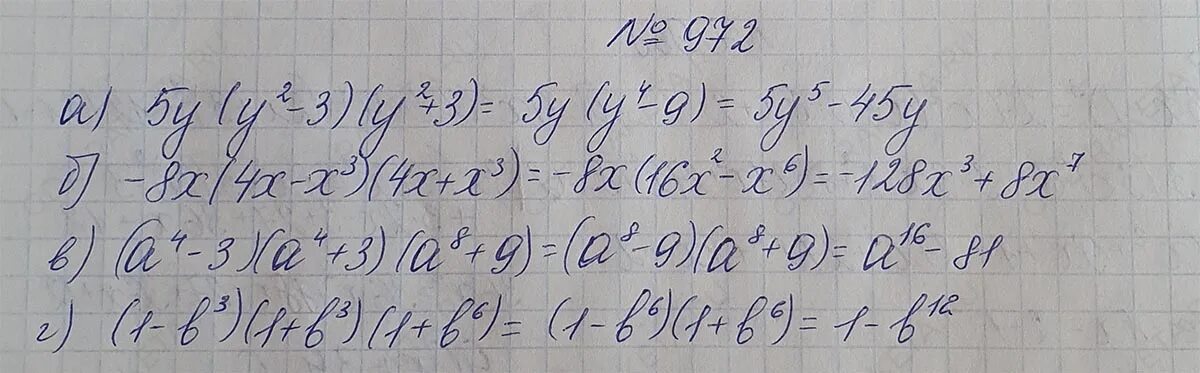 № 972
а) 5y (y² - 3)(y² + 3) = 5y (y⁴ - 9) = 5y⁵ - 45y
б) -8x(4x - x³)(4x + x³) = -8x(16x² - x⁶) = -128x³ + 8x⁷
в) (a⁴ - 3)(a⁴ + 3)(a⁸ + 9) = (a⁸ - 9)(a⁸ + 9) = a¹⁶ - 81
г) (1 - b³)(1 + b³)(1 + b⁶) = (1 - b⁶)(1 + b⁶) = 1 - b¹²